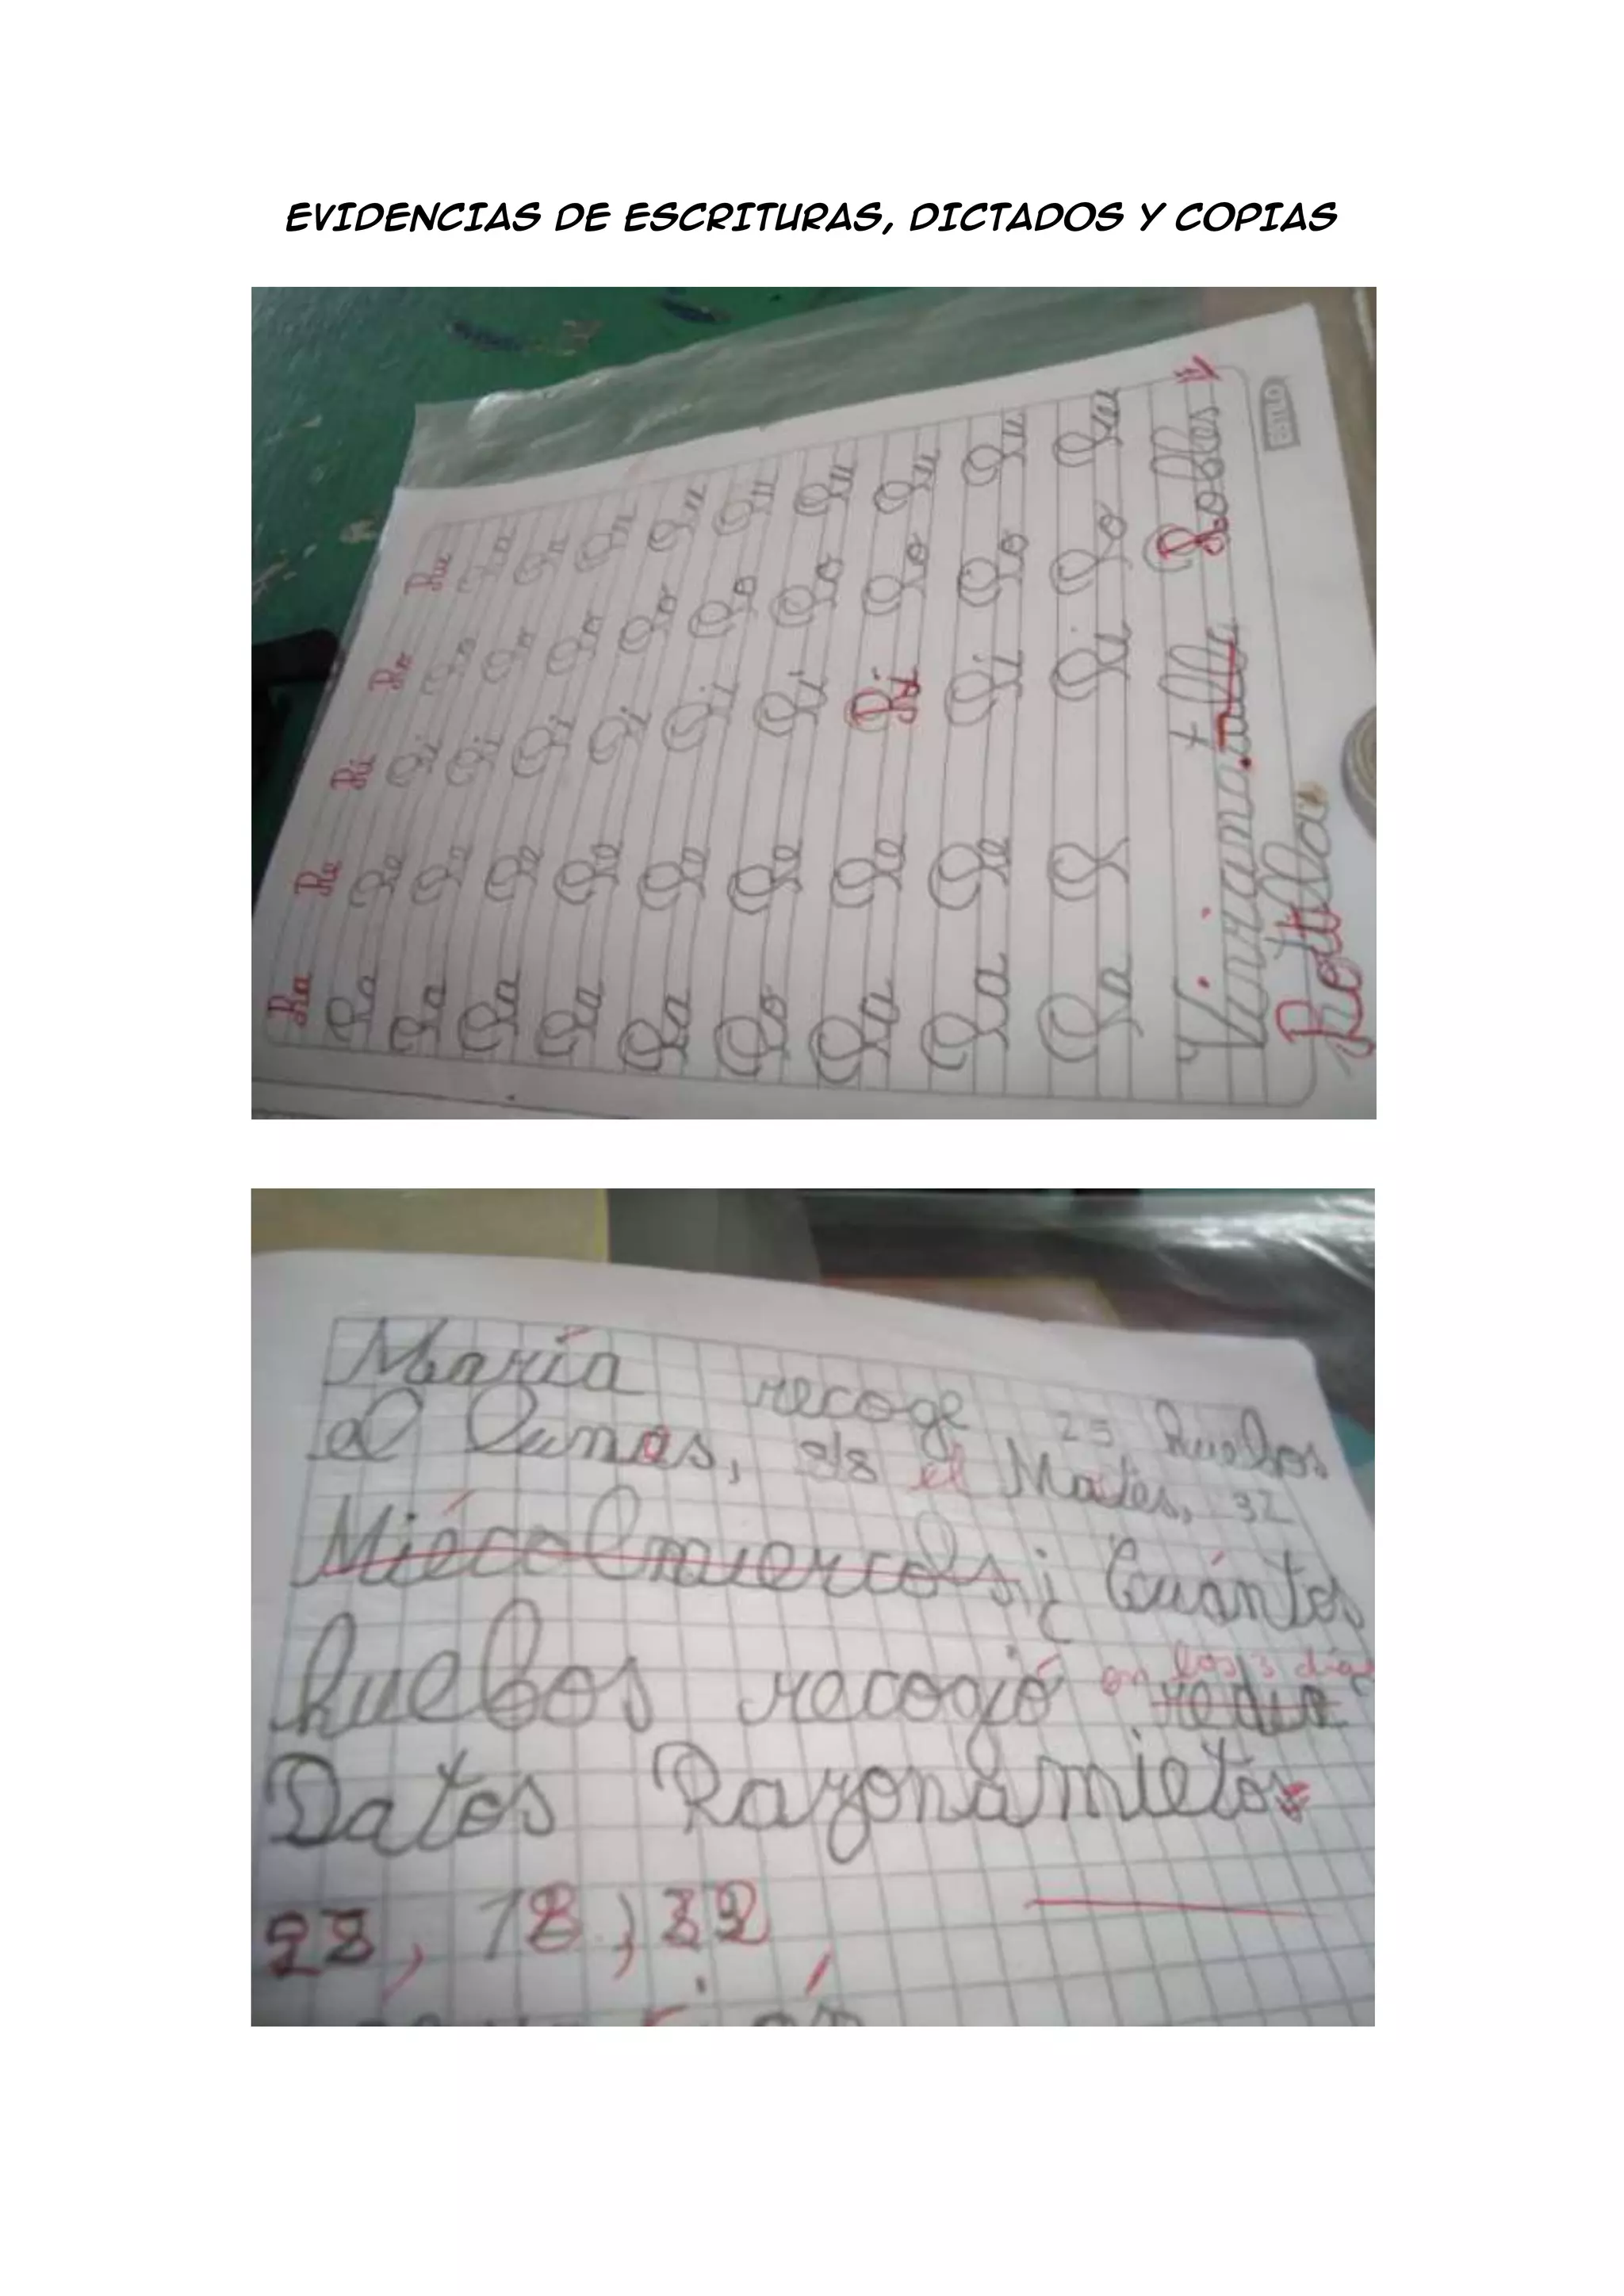 EVIDENCIAS DE ESCRITURAS, DICTADOS Y COPIAS
Ra Re Ri Ro Ru
Ra Re Ri Ro Ru
Ra Re Ri Ro Ru
Ra Re Ri Ro Ru
Ra Re Ri Ro Ru
Ra Re Ri Ro Ru
Ro Re Ri Ro Ru
Ra Re Ri Ro Ru
Ra Re Ri Ro Ru
Ra R Ri Ro Ru
Robles
Retilla
ESTILO
María recoge 25 huebos
el Lunas, el Mates, 32
Miécolmiercols ¿Cuántos
huebos recogió en los 3 días
Datos Razonamietos
18, 32